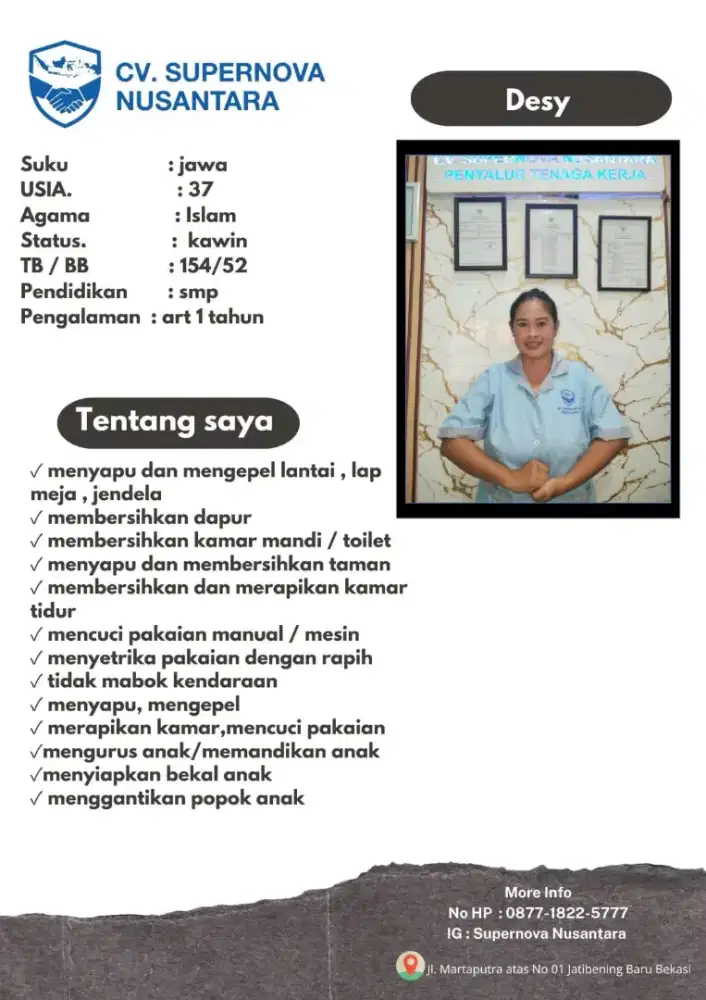 CV. SUPERNOVA
NUSANTARA
Desy
Suku : jawa
USIA. : 37
Agama : Islam
Status. : kawin
TB / BB : 154/52
Pendidikan : smp
Pengalaman : art 1 tahun
CV. SUPERNOVA NUSANTARA
PENYALUR TENAGA KERJA
Tentang saya
✓ menyapu dan mengepel lantai , lap
meja , jendela
✓ membersihkan dapur
✓ membersihkan kamar mandi / toilet
✓ menyapu dan membersihkan taman
✓ membersihkan dan merapikan kamar
tidur
✓ mencuci pakaian manual / mesin
✓ menyetrika pakaian dengan rapih
✓ tidak mabok kendaraan
✓ menyapu, mengepel
✓ merapikan kamar,mencuci pakaian
✓mengurus anak/memandikan anak
✓menyiapkan bekal anak
✓ menggantikan popok anak
More Info
No HP : 0877-1822-5777
IG : Supernova Nusantara
Jl. Martaputra atas No 01 Jatibening Baru Bekasi